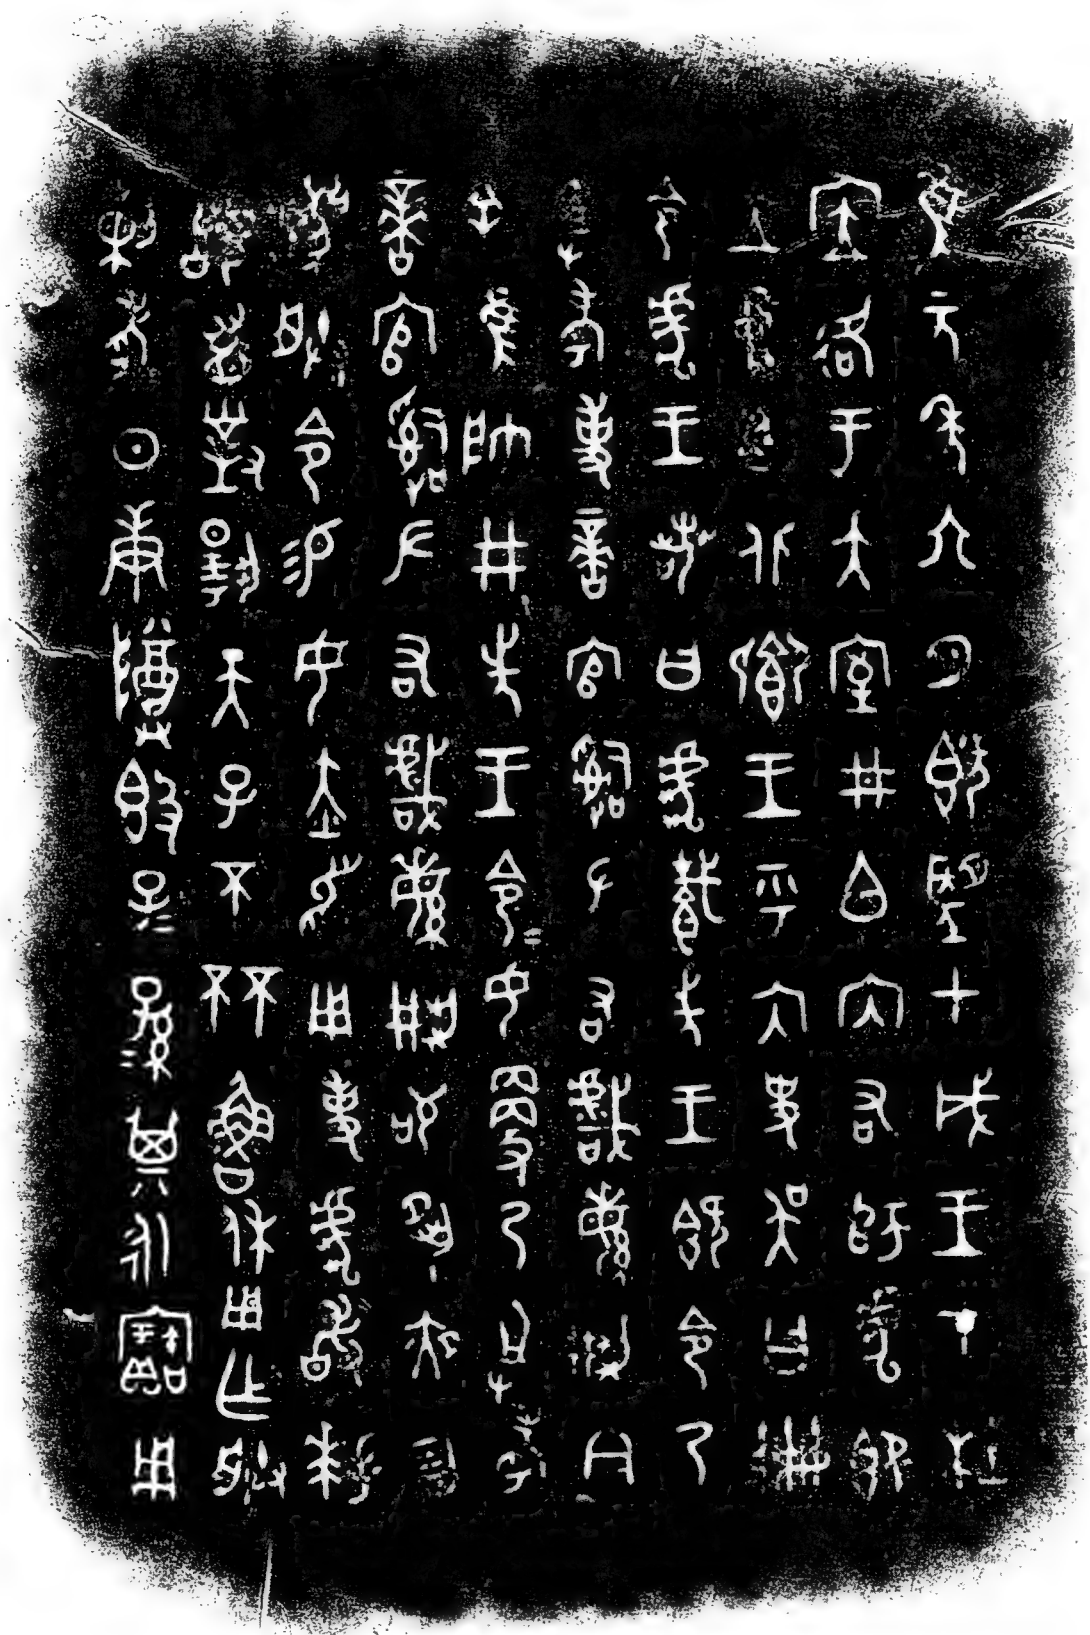 隹元年六月既望甲戌王才杜
㡴各于大室井白內右師虎即
立中廷北鄉王乎內史吳曰冊
令虎王若曰虎𢦚先王既令乃
祖考事啻官𤔲ナ右戲緐荊今
余隹帥井先王令=女更乃祖考
啻官𤔲ナ右戲緐荊苟夙夜勿
灋朕令易女赤舄用事虎敢拜
𩒨首對揚天子不𠀠魯休用乍朕
剌考日庚尊𣪘子=孫=其永寶用